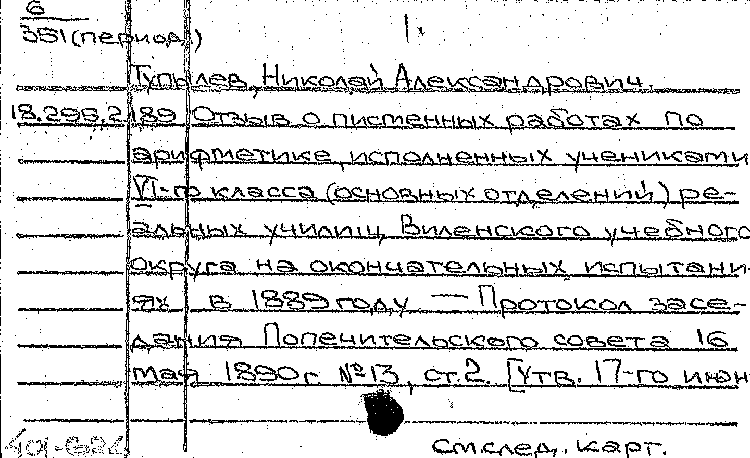 6
351(период.)
1.
Тупылев, Николай Александрович.
18.296.2.189 Отзыв о писменных работах по
арифметике, исполненных учениками
VI-го класса (основных отделений) ре-
альных училищ Виленского учебного
округа на окончательных испытани-
ях в 1889 году — Протокол засе-
дания Попечительского совета 16
мая 1890 г. № 13, ст. 2. [Утв. 17-го июн
см. след. карт.